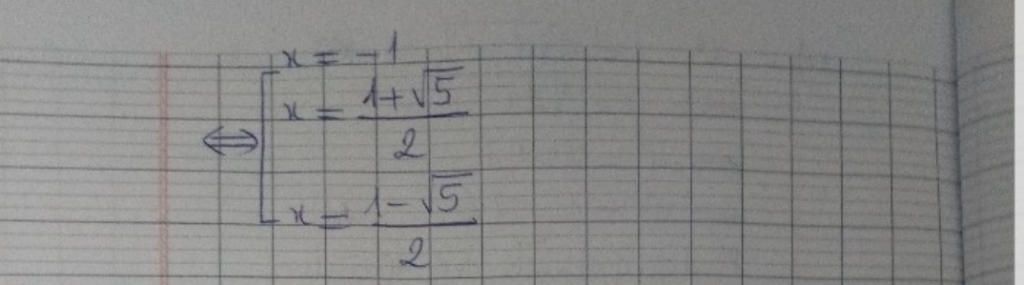 x = -1
⇔ [ x = \frac{1+\sqrt{5}}{2}
x = \frac{1-\sqrt{5}}{2}